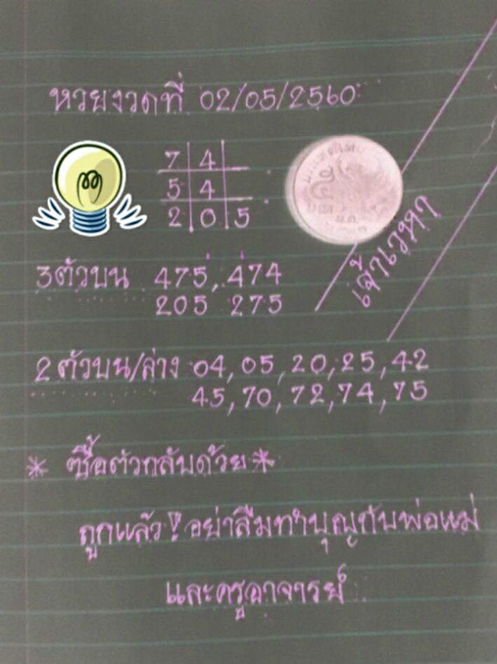 หวยงวดที่ 02/05/2560
7 4
5 4
2 0 5
เจ้าเวหา
3ตัวบน 475, 474
205 275
2 ตัวบน/ล่าง 04, 05, 20, 25, 42
45, 70, 72, 74, 75
* ซื้อตัวกลับด้วย *
ถูกแล้ว! อย่าลืมทำบุญกับพ่อแม่
และครูอาจารย์